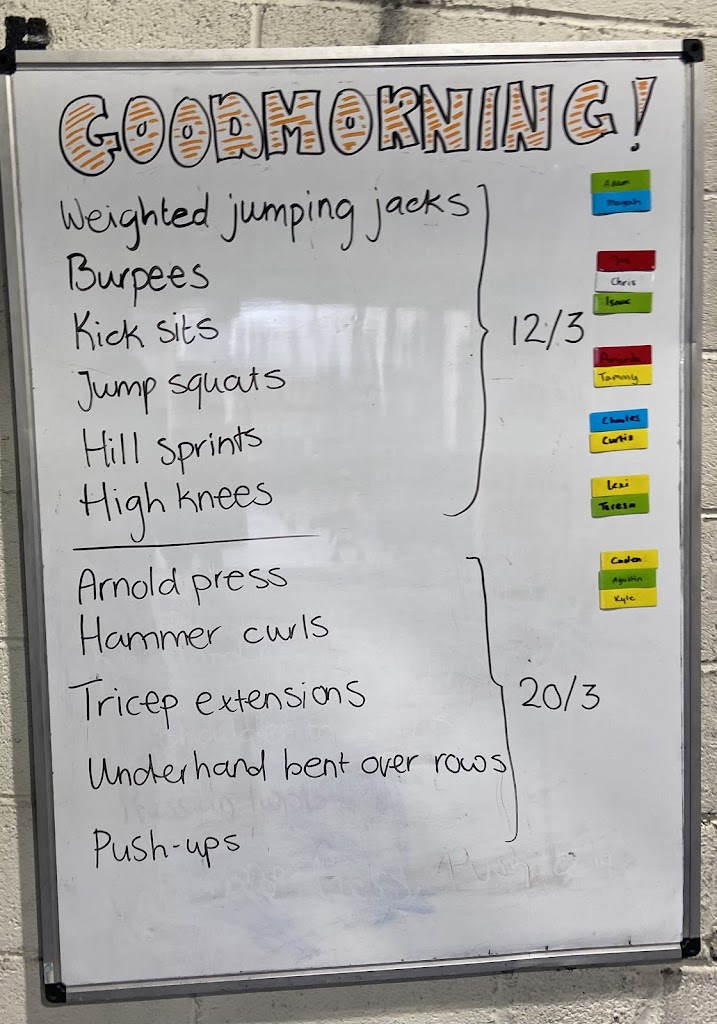 GOODMORNING!
Weighted jumping jacks
Burpees
Kick sits
Jump squats
Hill sprints
High knees
12/3
Arnold press
Hammer curls
Tricep extensions
Underhand bent over rows
Push-ups
20/3
Adam
Chris
Isaac
Amanda
Tammy
Charles
Curtis
Lexi
Teresa
Agustin
Kyle